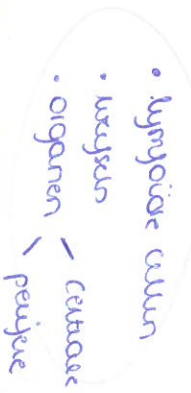 • lymfoïde cellen
• weefsels
• organen < centrale
perifere